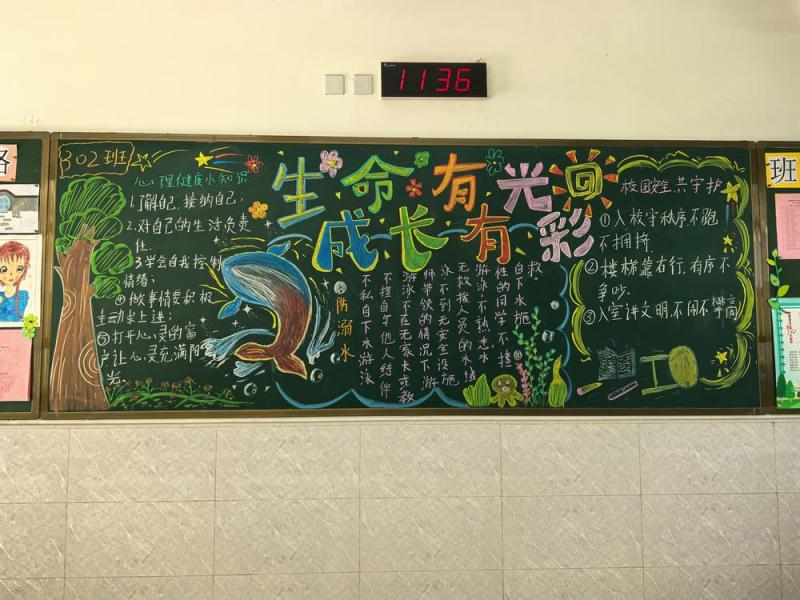 1136
班
302班
心理健康小知识
1.了解自己,接纳自己;
2.对自己的生活负责
任.
3.学会自我控制
情绪;
④做事情要积极
主动求上进;
⑤打开心灵的窗
户让心灵充满阳
光
生命有光
成长有彩
防溺水
不私自下水游泳
不擅自与他人结伴
游泳不在无家长或教
师带领的情况下游
泳不到无安全设施
无救援人员的水域
游泳,不熟悉水
性的同学不擅
自下水施
救.
校园安全,共守护
①入校守秩序,不跑
不拥挤
②楼梯靠右行,有序不
争吵.
③入室讲文明,不闹不攀高